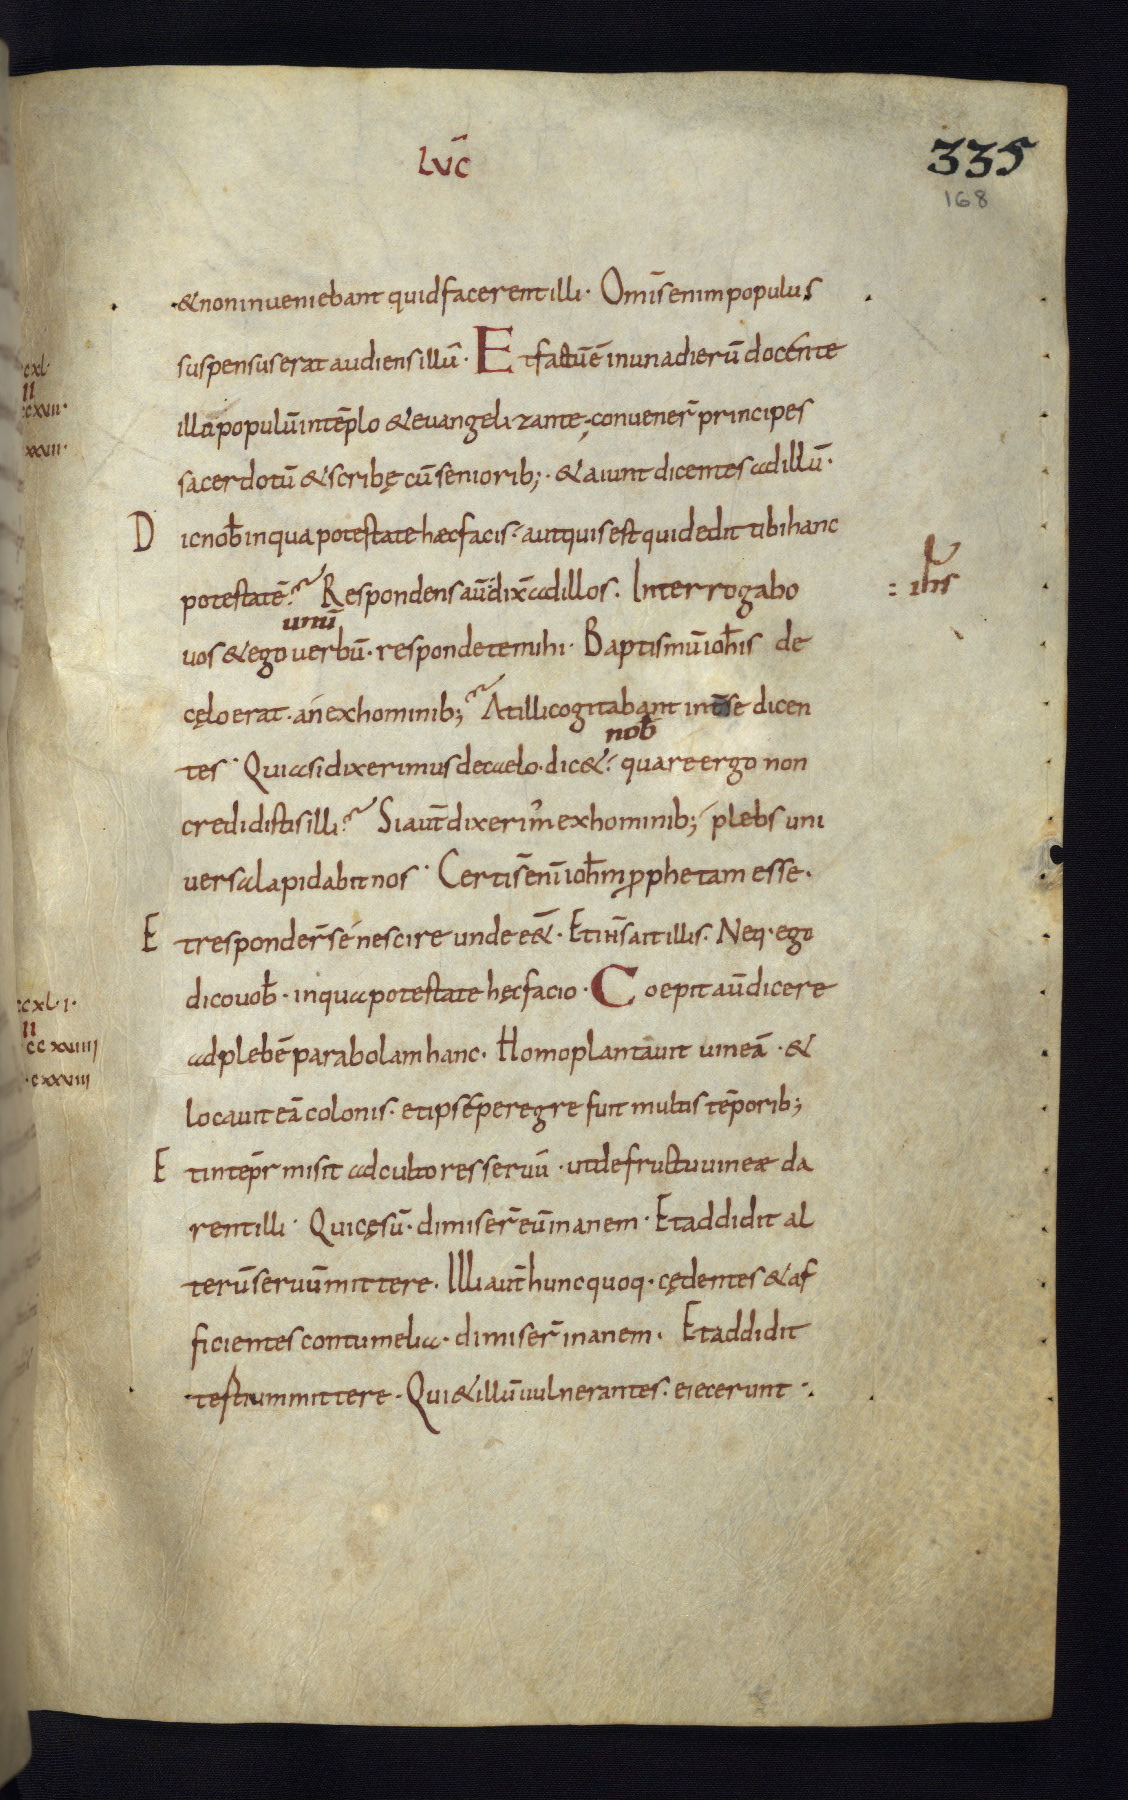 LVC̄
335
168
& non inveniebant quid facerent illi · Omīs enim populus
suspensus erat audiens illū · Et factū ē in una dierū docente
illo populū in tēplo & evangelizante, convener̄ principes
sacerdotū & scribę cū seniorib; · & aiunt dicentes ad illū ·
Dic nob̄ in qua potestate hæc facis · aut quis est qui dedit tibi hanc
potestatē? Respondens aū dix̄ ad illos. Interrogabo
: ih̄s
unū
vos & ego verbū · respondete mihi · Baptismū ioh̄is de
cęlo erat · an ex hominib;? At illi cogitabant int̄ se dicen
nob̄
tes · Quia si dixerimus de caelo · dic& · quare ergo non
credidistis illi? Si aut̄ dixerim̉ ex hominib; plebs uni
versa lapidabit nos · Certi s̄ enī ioh̄m p̱phetam esse ·
Et responder̄ se nescire unde e&̄ · Et ih̄s ait illis. Neq · ego
dico vob̄ · in qua potestate hęc facio · Coepit aū dicere
ad plebē parabolam hanc · Homo plantavit vineā · &
locavit eā colonis · et ipse peregre fuit multis tēporib;
Et in tēpr misit ad cultores servū · ut de fructu vineæ da
rent illi · Qui cęsū · dimiser̄ eū inanem · Et addidit al
terū servū mittere · Illi aut̄ hunc quoq · cędentes & af
ficientes contumelia · dimiser̄ inanem · Et addidit
tertium mittere · Qui & illū vulnerantes · eiecerunt ·
cxl ·
II
cxvii ·
xxvii ·
cxl · i ·
II
cc xxviiii
· cxxviii